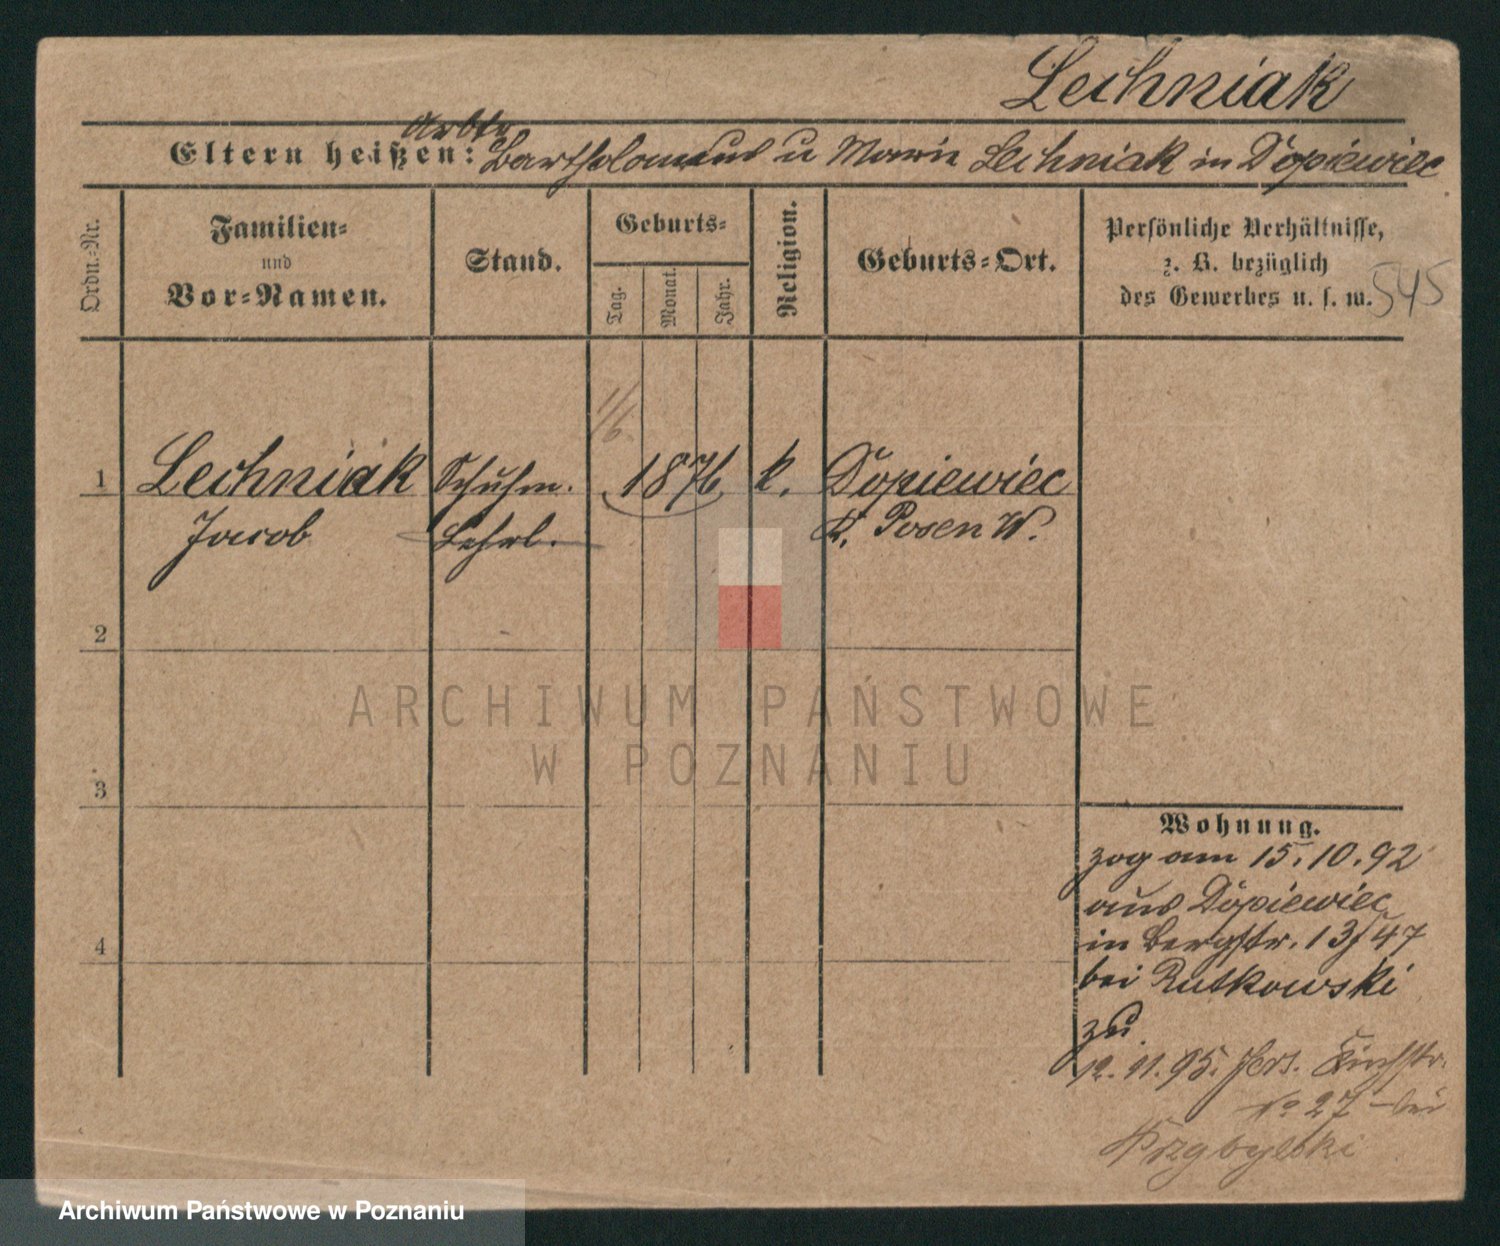 Lechniak
Arbtr
Eltern heißen: Bartholomeus u Marie Lechniak in Dopiewiec
Ordn.-Nr.
Familien-
und
Vor-Namen.
Stand.
Geburts-
Tag.
Monat.
Jahr.
Religion.
Geburts-Ort.
Persönliche Verhältnisse,
z. B. bezüglich
des Gewerbes u. s. w.
545
1/6.
1 Lechniak Schuhm. 1876 k. Dopiewiec
Jacob Lehrl. Kr. Posen W.
2
3
4
Wohnung.
zog am 15.10.92
aus Dopiewiec
in Bergstr. 13/47
bei Rutkowski
zu.
12.11.95. Jers. Kirchstr.
No 27 bei
Przybylski
ARCHIWUM PAŃSTWOWE
W POZNANIU
Archiwum Państwowe w Poznaniu